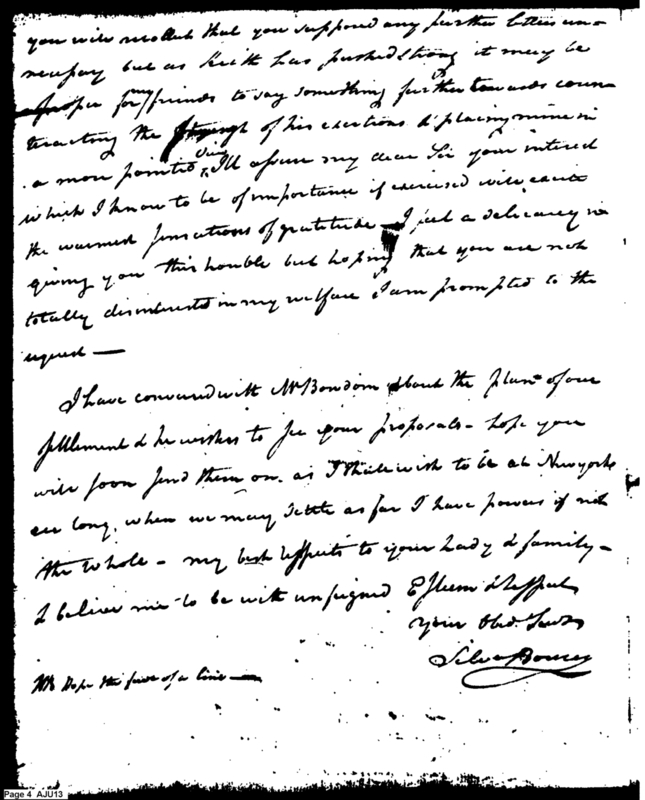 you will recollect that you supposed any further letters un=
necessary but as Keith has pushed strong it may be
proper for my friends to say something further towards coun
teracting the strength of his exertions & placing mine in
a more pointed view, I'll assure my dear Sir your interest
which I know to be of importance if exercised will excite
the warmest sensations of gratitude — I feel a delicacy in
giving you this trouble but hoping that you are not
totally disinterested in my welfare I am prompted to the
request —
I have conversed with Mr Bowdoin about the plan of our
settlement & he wishes to see your proposals - hope you
will soon send them on. as I shall wish to be at Newyork
ere long, when we may settle as far I have powers if not
the whole - my best respects to your Lady & family -
& believe me to be with unfeigned Esteem & Respect
your Obed. Servt
Silva Bourne
NB Hope the favr of a line —
Page 4 AJU13